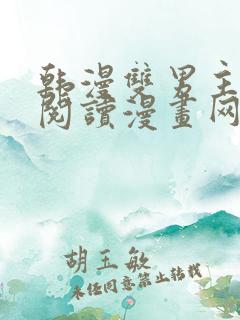 韩漫雙男主
閱讀漫畫网
胡玉敏
未经同意禁止转载